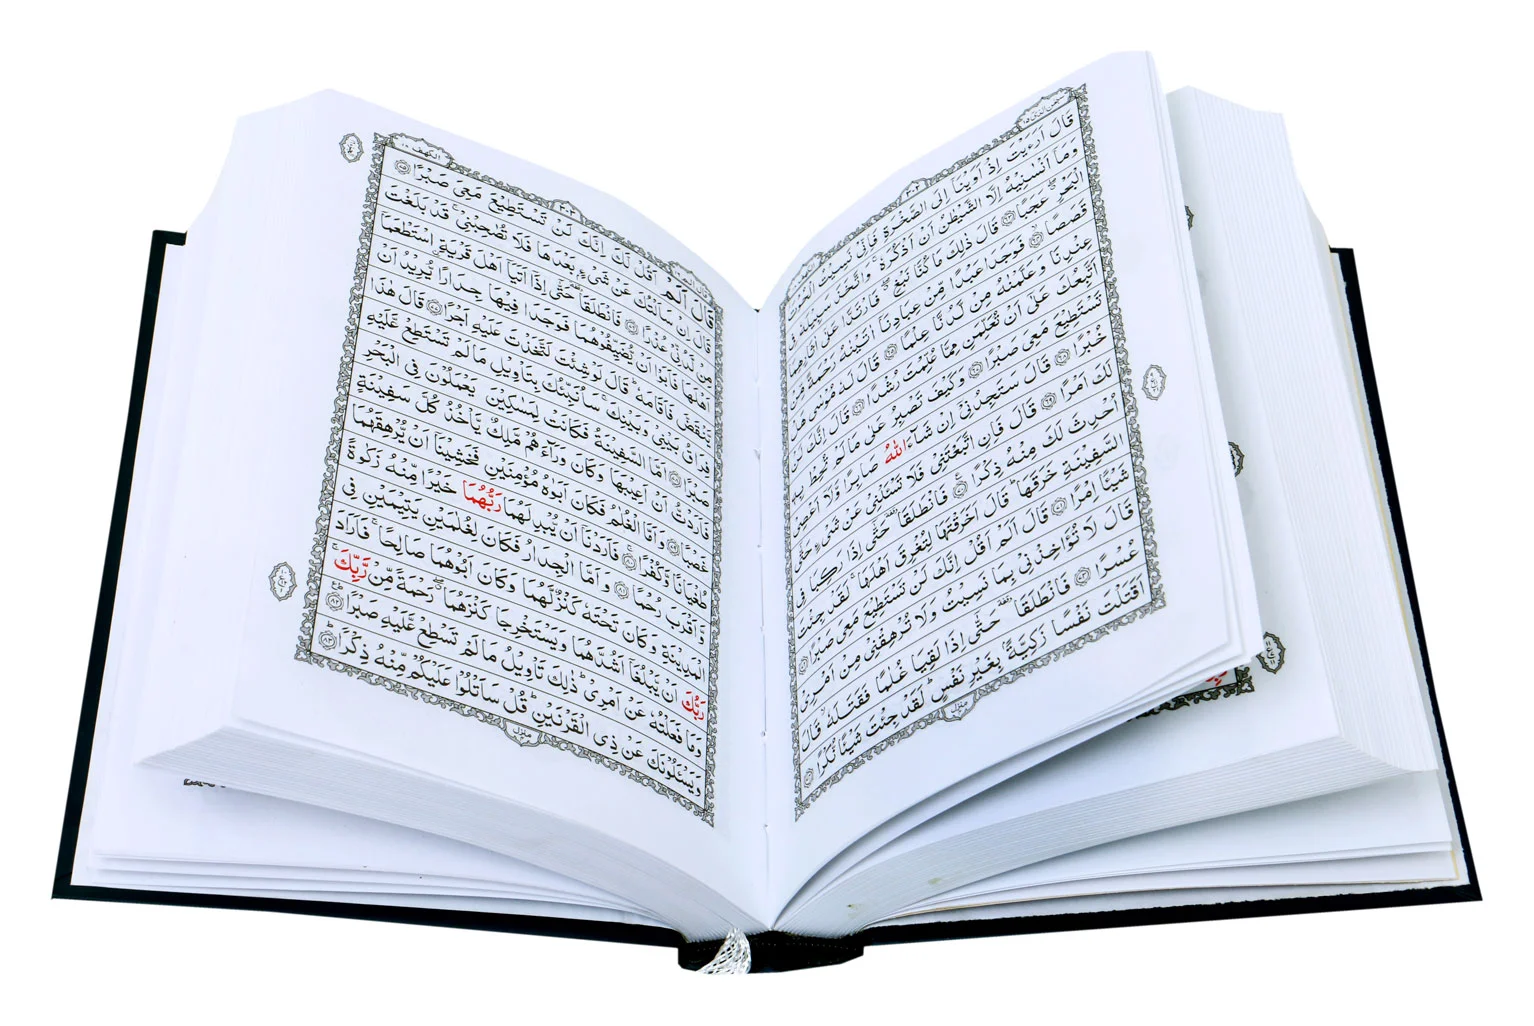 سُبْحٰنَ الَّذِىْ ١٥
قَالَ اَرَءَيْتَ اِذْ اَوَيْنَاۤ اِلَى الصَّخْرَةِ فَاِنِّىْ نَسِيْتُ الْحُوْتَ
وَمَاۤ اَنْسٰنِيْهُ اِلَّا الشَّيْطٰنُ اَنْ اَذْكُرَهٗ ۚ وَاتَّخَذَ سَبِيْلَهٗ فِى
الْبَحْرِ ۖ عَجَبًا ﴿٦٣﴾ قَالَ ذٰلِكَ مَا كُنَّا نَبْغِ ۖ فَارْتَدَّا عَلٰۤى اٰثَارِهِمَا
قَصَصًا ﴿٦٤﴾ فَوَجَدَا عَبْدًا مِّنْ عِبَادِنَاۤ اٰتَيْنٰهُ رَحْمَةً مِّنْ
عِنْدِنَا وَعَلَّمْنٰهُ مِنْ لَّدُنَّا عِلْمًا ﴿٦٥﴾ قَالَ لَهٗ مُوْسٰى هَلْ
اَتَّبِعُكَ عَلٰۤى اَنْ تُعَلِّمَنِ مِمَّا عُلِّمْتَ رُشْدًا ﴿٦٦﴾ قَالَ اِنَّكَ لَنْ
تَسْتَطِيْعَ مَعِىَ صَبْرًا ﴿٦٧﴾ وَكَيْفَ تَصْبِرُ عَلٰى مَا لَمْ تُحِطْ بِهٖ
خُبْرًا ﴿٦٨﴾ قَالَ سَتَجِدُنِىْۤ اِنْ شَآءَ اللّٰهُ صَابِرًا وَّلَاۤ اَعْصِىْ
لَكَ اَمْرًا ﴿٦٩﴾ قَالَ فَاِنِ اتَّبَعْتَنِىْ فَلَا تَسْـَٔلْنِىْ عَنْ شَىْءٍ حَتّٰۤى
اُحْدِثَ لَكَ مِنْهُ ذِكْرًا ﴿٧٠﴾ فَانْطَلَقَا حَتّٰۤى اِذَا رَكِبَا فِى
السَّفِيْنَةِ خَرَقَهَا ؕ قَالَ اَخَرَقْتَهَا لِتُغْرِقَ اَهْلَهَا ۚ لَقَدْ جِئْتَ
شَيْـًٔا اِمْرًا ﴿٧١﴾ قَالَ اَلَمْ اَقُلْ اِنَّكَ لَنْ تَسْتَطِيْعَ مَعِىَ صَبْرًا ﴿٧٢﴾
قَالَ لَا تُؤَاخِذْنِىْ بِمَا نَسِيْتُ وَلَا تُرْهِقْنِىْ مِنْ اَمْرِىْ
عُسْرًا ﴿٧٣﴾ فَانْطَلَقَا حَتّٰۤى اِذَا لَقِيَا غُلٰمًا فَقَتَلَهٗ ۙ قَالَ
اَقَتَلْتَ نَفْسًا زَكِيَّةًۢ بِغَيْرِ نَفْسٍ ؕ لَقَدْ جِئْتَ شَيْـًٔا نُّكْرًا ﴿٧٤﴾
منزل
الكهف ١٨
٣٠٣
قَالَ اَلَمْ اَقُلْ لَّكَ اِنَّكَ لَنْ تَسْتَطِيْعَ مَعِىَ صَبْرًا ﴿٧٥﴾
قَالَ اِنْ سَاَلْتُكَ عَنْ شَىْءٍۭ بَعْدَهَا فَلَا تُصٰحِبْنِىْ ۚ قَدْ بَلَغْتَ
مِنْ لَّدُنِّىْ عُذْرًا ﴿٧٦﴾ فَانْطَلَقَا حَتّٰۤى اِذَاۤ اَتَيَاۤ اَهْلَ قَرْيَةِ ۨاسْتَطْعَمَاۤ
اَهْلَهَا فَاَبَوْا اَنْ يُّضَيِّفُوْهُمَا فَوَجَدَا فِيْهَا جِدَارًا يُّرِيْدُ اَنْ
يَّنْقَضَّ فَاَقَامَهٗ ؕ قَالَ لَوْ شِئْتَ لَتَّخَذْتَ عَلَيْهِ اَجْرًا ﴿٧٧﴾ قَالَ هٰذَا
فِرَاقُ بَيْنِىْ وَبَيْنِكَ ۚ سَاُنَبِّئُكَ بِتَاْوِيْلِ مَا لَمْ تَسْتَطِعْ عَّلَيْهِ
صَبْرًا ﴿٧٨﴾ اَمَّا السَّفِيْنَةُ فَكَانَتْ لِمَسٰكِيْنَ يَعْمَلُوْنَ فِى الْبَحْرِ
فَاَرَدْتُّ اَنْ اَعِيْبَهَا وَكَانَ وَرَآءَهُمْ مَّلِكٌ يَّاْخُذُ كُلَّ سَفِيْنَةٍ
غَصْبًا ﴿٧٩﴾ وَاَمَّا الْغُلٰمُ فَكَانَ اَبَوٰهُ مُؤْمِنَيْنِ فَخَشِيْنَاۤ اَنْ يُّرْهِقَهُمَا
طُغْيَانًا وَّكُفْرًا ﴿٨٠﴾ فَاَرَدْنَاۤ اَنْ يُّبْدِلَهُمَا رَبُّهُمَا خَيْرًا مِّنْهُ زَكٰوةً
وَّاَقْرَبَ رُحْمًا ﴿٨١﴾ وَاَمَّا الْجِدَارُ فَكَانَ لِغُلٰمَيْنِ يَتِيْمَيْنِ فِى
الْمَدِيْنَةِ وَكَانَ تَحْتَهٗ كَنْزٌ لَّهُمَا وَكَانَ اَبُوْهُمَا صَالِحًا ۚ فَاَرَادَ
رَبُّكَ اَنْ يَّبْلُغَاۤ اَشُدَّهُمَا وَيَسْتَخْرِجَا كَنْزَهُمَا ۖ رَحْمَةً مِّنْ رَّبِّكَ ۚ
وَمَا فَعَلْتُهٗ عَنْ اَمْرِىْ ؕ ذٰلِكَ تَاْوِيْلُ مَا لَمْ تَسْطِعْ عَّلَيْهِ صَبْرًا ﴿٨٢﴾
وَيَسْـَٔلُوْنَكَ عَنْ ذِى الْقَرْنَيْنِ ؕ قُلْ سَاَتْلُوْا عَلَيْكُمْ مِّنْهُ ذِكْرًا ﴿٨٣﴾
منزل